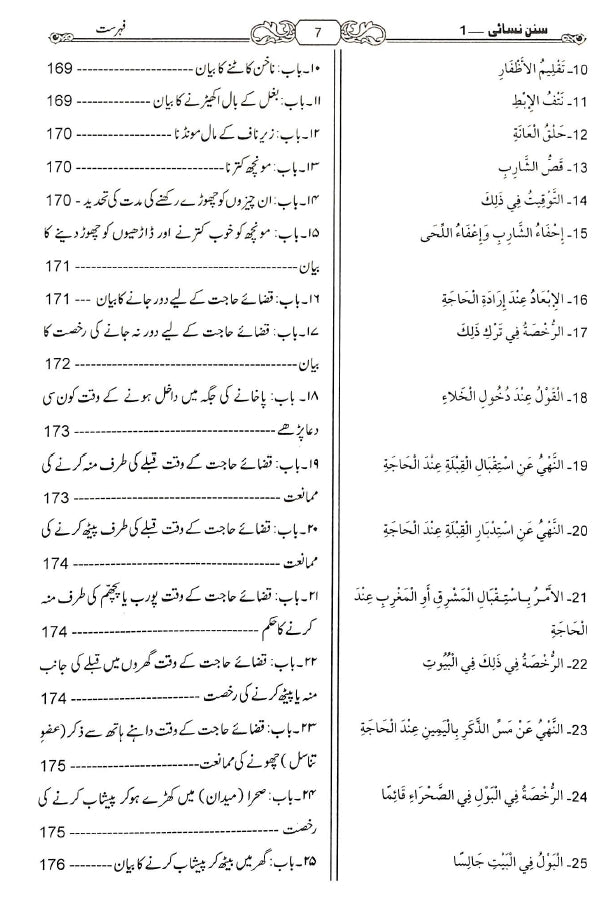 سنن نسائی ــ 1
7
فہرست
10- تَقْلِيمُ الأَظْفَارِ
۱۰۔باب: ناخن کاٹنے کا بیان ---------------------- 169
11- نَتْفُ الْإِبْطِ
۱۱۔باب: بغل کے بال اکھیڑنے کا بیان -------------- 169
12- حَلْقُ الْعَانَةِ
۱۲۔باب: زیر ناف کے مال مونڈنا ---------------- 170
13- قَصُّ الشَّارِبِ
۱۳۔باب: مونچھ کترنا ------------------------- 170
14- التَّوْقِيتُ فِي ذَلِكَ
۱۴۔باب: ان چیزوں کو چھوڑے رکھنے کی مدت کی تحدید - 170
15- إِحْفَاءُ الشَّارِبِ وَإِعْفَاءُ اللِّحَى
۱۵۔باب: مونچھ کو خوب کترنے اور ڈاڑھیوں کو چھوڑ دینے کا
بیان -------------------------------- 171
16- الإِبْعَادُ عِنْدَ إِرَادَةِ الْحَاجَةِ
۱۶۔باب: قضائے حاجت کے لیے دور جانے کا بیان --- 171
17- الرُّخْصَةُ فِي تَرْكِ ذَلِكَ
۱۷۔باب: قضائے حاجت کے لیے دور نہ جانے کی رخصت کا
بیان -------------------------------- 172
18- الْقَوْلُ عِنْدَ دُخُولِ الْخَلاءِ
۱۸۔ باب: پاخانے کی جگہ میں داخل ہونے کے وقت کون سی
دعا پڑھے ----------------------------- 173
19- النَّهْيُ عَنِ اسْتِقْبَالِ الْقِبْلَةِ عِنْدَ الْحَاجَةِ
۱۹۔باب: قضائے حاجت کے وقت قبلے کی طرف منہ کرنے کی
ممانعت ------------------------------ 173
20- النَّهْيُ عَنِ اسْتِدْبَارِ الْقِبْلَةِ عِنْدَ الْحَاجَةِ
۲۰۔باب: قضائے حاجت کے وقت قبلے کی طرف پیٹھ کرنے کی
ممانعت ------------------------------ 174
21- الأَمْرُ بِاسْتِقْبَالِ الْمَشْرِقِ أَوِ الْمَغْرِبِ عِنْدَ
الْحَاجَةِ
۲۱۔باب: قضائے حاجت کے وقت پورب یا پچھّم کی طرف منہ
کرنے کا حکم --------------------------- 174
22- الرُّخْصَةُ فِي ذَلِكَ فِي الْبُيُوتِ
۲۲۔باب: قضائے حاجت کے وقت گھروں میں قبلے کی جانب
منہ یا پیٹھ کرنے کی رخصت ------------------ 174
23- النَّهْيُ عَنْ مَسِّ الذَّكَرِ بِالْيَمِينِ عِنْدَ الْحَاجَةِ
۲۳۔باب: قضائے حاجت کے وقت داہنے ہاتھ سے ذکر (عضو
تناسل ) چھونے کی ممانعت ------------------ 175
24- الرُّخْصَةُ فِي الْبَوْلِ فِي الصَّحْرَاءِ قَائِمًا
۲۴۔باب: صحرا (میدان) میں کھڑے ہوکر پیشاب کرنے کی
رخصت ------------------------------ 175
25- الْبَوْلُ فِي الْبَيْتِ جَالِسًا
۲۵۔باب: گھر میں بیٹھ کر پیشاب کرنے کا بیان -------- 176